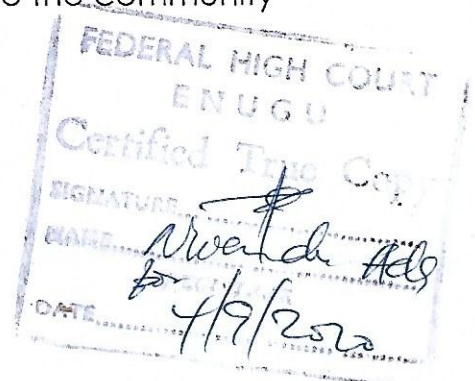 the Community
FEDERAL HIGH COURT
ENUGU
Certified True Copy
SIGNATURE
NAME
for
DATE 4/9/2020